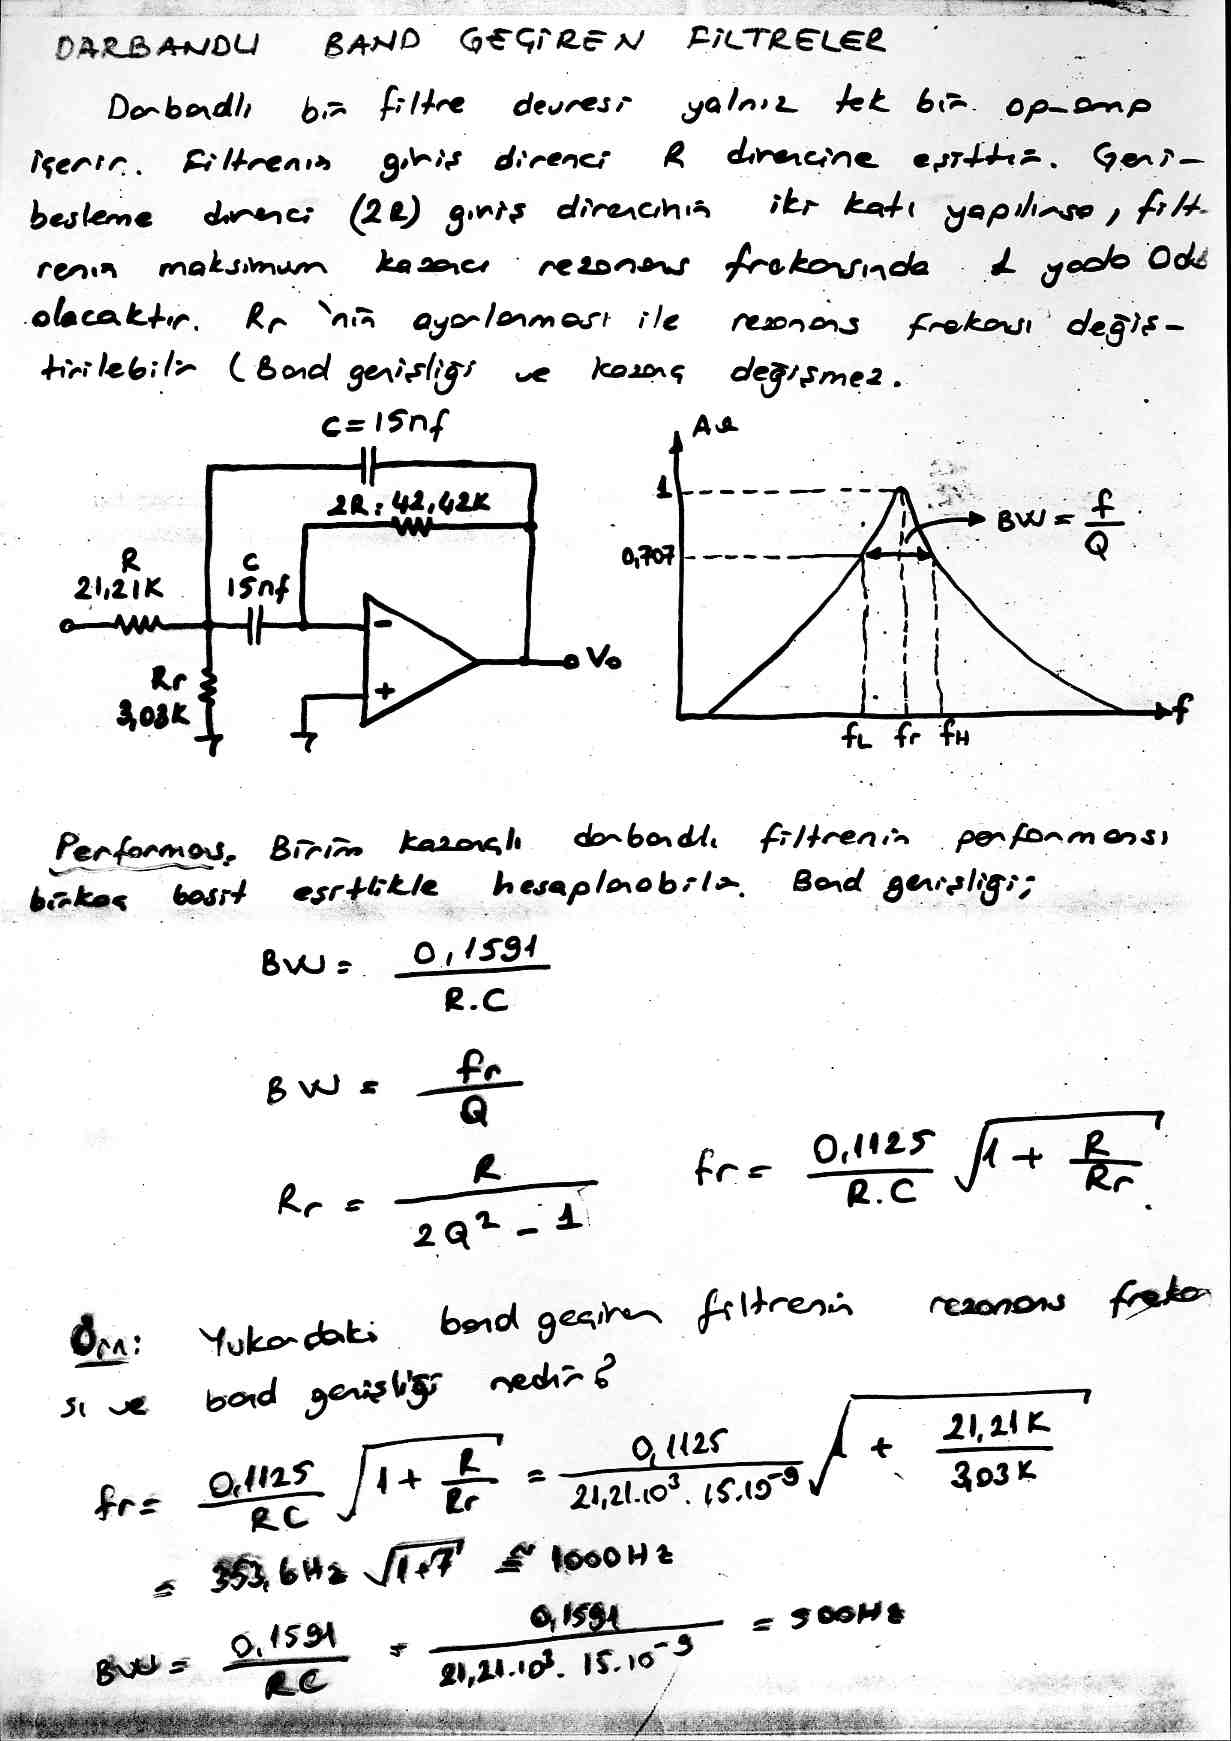 DARBANDLI BAND GEÇİREN FİLTRELER
Darbandlı bir filtre devresi yalnız tek bir op-amp
içerir. Filtrenin giriş direnci R direncine eşittir. Geri-
besleme direnci (2R) giriş direncinin iki katı yapılırsa, filt-
renin maksimum kazancı rezonans frekansında 1 yada 0db
olacaktır. Rr 'nin ayarlanması ile rezonans frekansı değiş-
tirilebilir (Band genişliği ve kazanç değişmez.
C=15nf
2R: 42,42K
R
21,21K
C
15nf
Rr
3,03K
-
+
Vo
1
0,707
BW = f/Q
fL fr fH
f
Performans. Birim kazançlı darbandlı filtrenin performansı
birkaç basit eşitlikle hesaplanabilir. Band genişliği;
BW = 0,1591 / R.C
BW = fr / Q
Rr = R / 2Q² - 1 fr = 0,1125 / R.C √1 + R/Rr
Örn: Yukardaki band geçiren filtrenin rezonans frekan
sı ve band genişliği nedir?
fr = 0,1125 / RC √1 + R/Rr = 0,1125 / 21,21.10³. 15.10⁻⁹ √1 + 21,21K / 3,03K
= 353,6Hz √1+7 ≅ 1000Hz
BW = 0,1591 / RC = 0,1591 / 21,21.10³. 15.10⁻⁹ = 500Hz